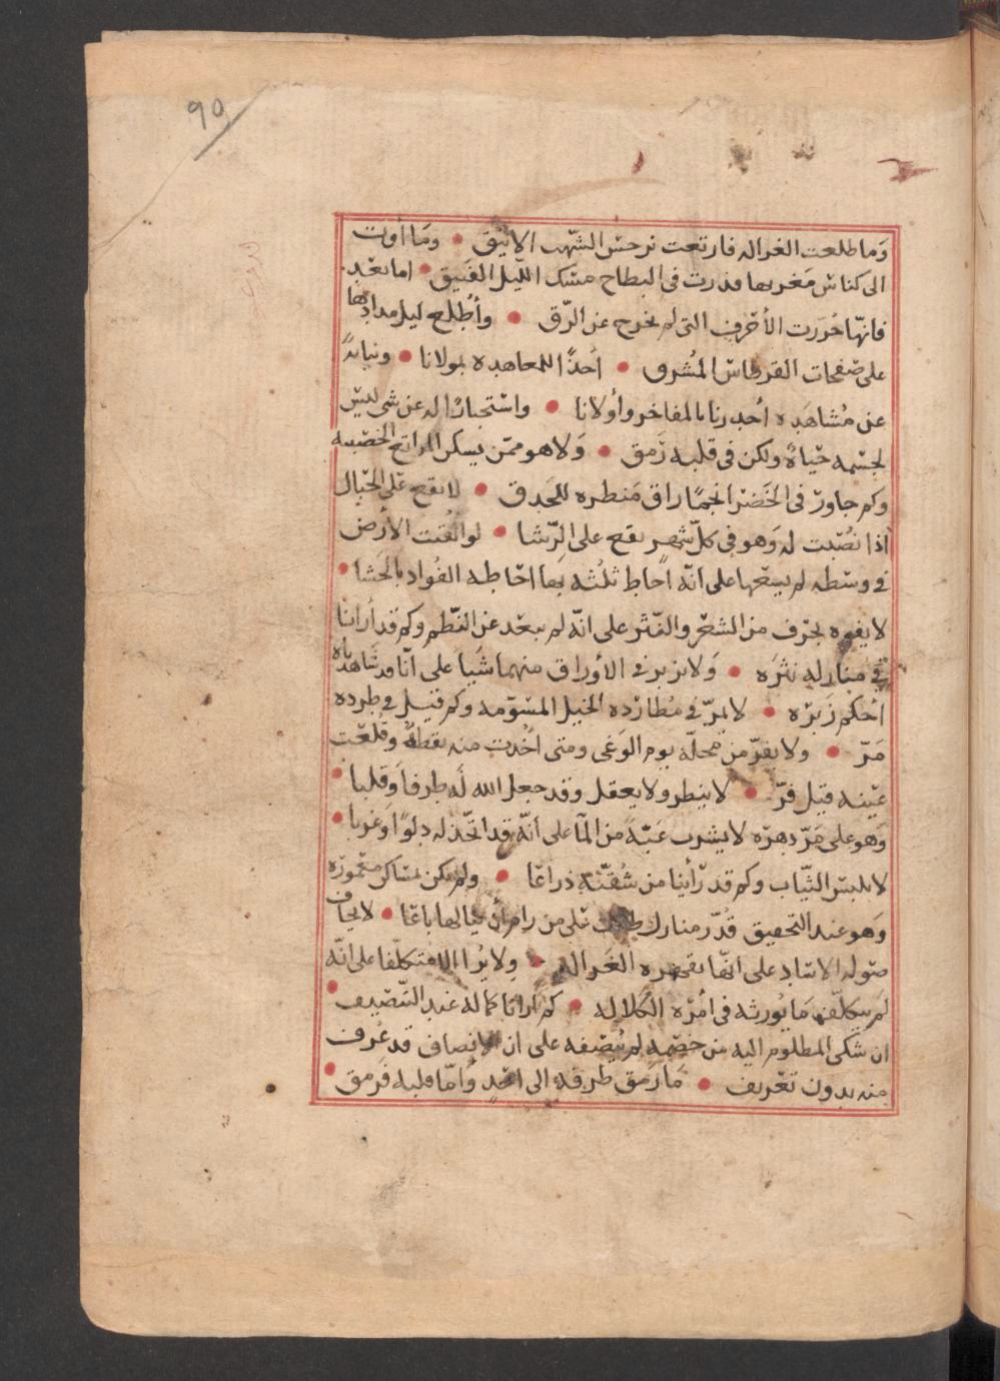 90
وما طلعت الغزاله فارتعت نرجس الشهب الانيق • وما أوت
الى كناس مغربها فذرت فى البطاح مسك الليل الفتيق • اما بعد
فانها حررت الأحرف التى لم تخرج عن الرّق • وأطلع ليل مدادها
على صفحات القرطاس المُشرق • احدًا للمعاهده بمولانا • ونيابةً
عن مُشاهده أحد رنا بالمفاخر وأولانا • واستخبارا له عن شى ليس
لجسمه حياةٌ ولكن فى قلبه رَمق • وَلا هو ممّن يسكن المراتع الخصبه
وكم جاور فى الخَضر انجمًا راق مَنظره للحدق • لا يقع على الخيال
اذا نصبت له وَهو فى كلّ شهر يقع على الرّشا • لو اُلقيت الأرض
فى وسطه لم يسعها على انّه احاط ثلثه بما احاط به الفُواد بالحَشا •
لا يفوه بحرف من الشعر والنّثر على انّه لم يبعد عن النّظم وكم قد أرانا
فى منازله نثرَه • وَلا يزبر فى الأوراق منهما شَيا على انّا قد شاهدناه
احكم زَبرَه • لا يمرّ فى مُطارده الخيل المسوّمه وكم قتيل فى طرده
مَرّ • ولا يفرّ من محلّه يوم الوَغى ومتى اُخذت منه نقطة وقلعَت
عَينه قيل فرّ • لا ينظر ولا يعقل وقد جعل الله له طرفا وَقلبا •
وَهو على مَرّ دهره لا يشرب عَبّة من المآ على انّه قد اتّخذ له دلوًا وَغربا •
لا يلبس الثّياب وكم قد رأينا من شُقّته ذراعًا • ولم يكن بمساكن معموره
وَهو عند التحقيق قُدّر منازل تلى من رام أن ينالها باعًا • لا يخاف
صَوله الاسَاد على انّها بقهره الغَزاله • ولا يُرا الا متكلّفا على انّه
لم يتكلّف مَا يُورثه فى امرَه الكلاله • كم أرانا كماله عند التنصيف •
ان شكى المظلوم اليه من خصمه لم يُنصفه على ان الانصاف قد عُرف
منه بدون تعريف • مَا رَمق طرفه الى احَد وَامّا قلبه فرَمق •